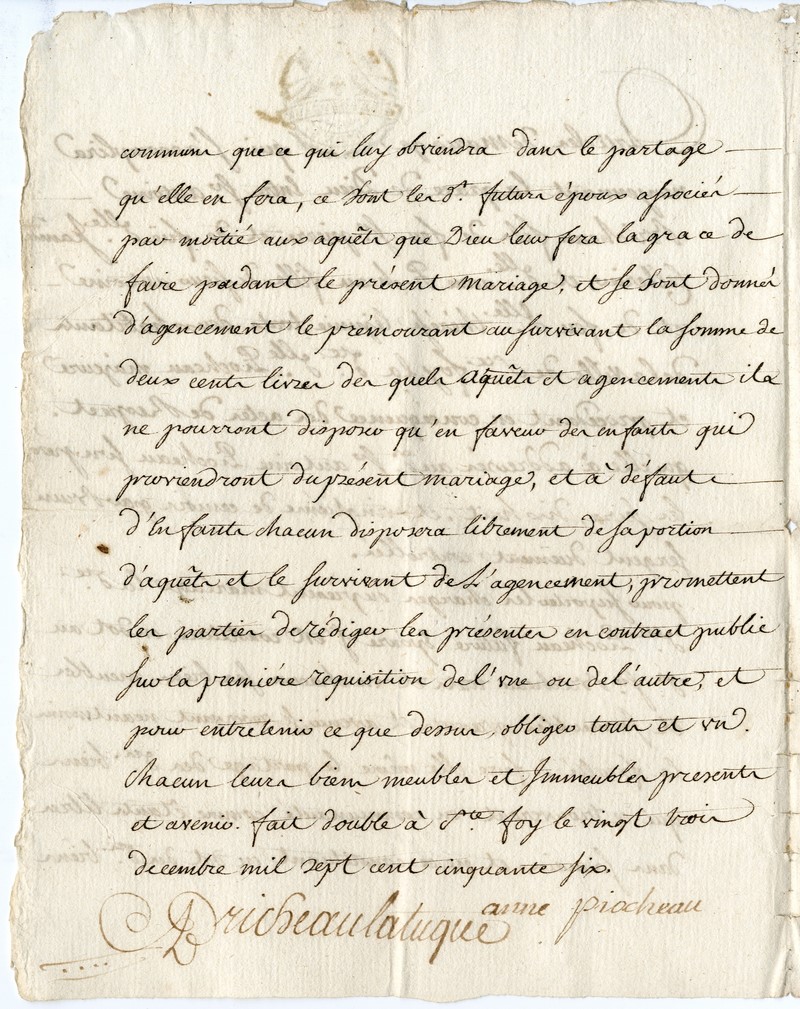 communs que ce qui luy obviendra dans le partage
qu'elle en fera, ce sont les d.ts futurs époux associés
par moitié aux aquêts que Dieu leur fera la grace de
faire pendant le présent mariage, et se sont donnés
d'agencement le prémourant au survivant la somme de
deux cents livres des quels aquêts et agencements ils
ne pourront disposer qu'en faveur des enfants qui
proviendront du présent mariage, et à défaut
d'Enfants chacun disposera librement de sa portion
d'aquêts et le survivant de L'agencement, promettent
les parties de rédiger les présentes en contract public
sur la premiére requisition de l'vne ou de l'autre, et
pour entretenir ce que dessus, obliger touts et vn.
chacun leurs biens meubles et Immeubles presents
et avenir. fait double à S.te foy le vingt trois
decembre mil sept cent cinquante six.
anne piocheau